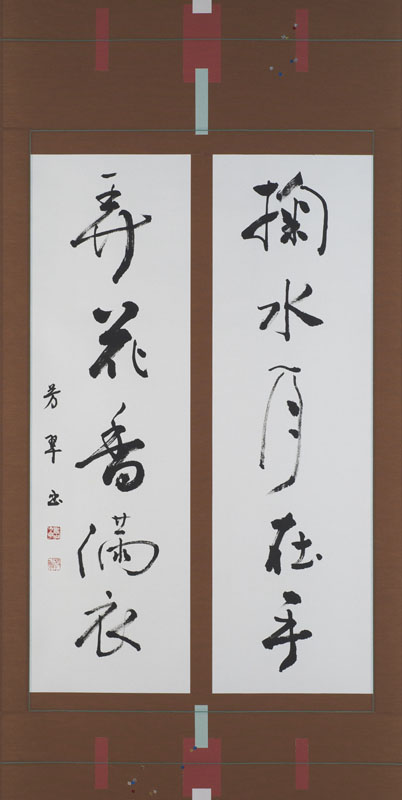 掬水月在手
弄花香滿衣
芳翠書